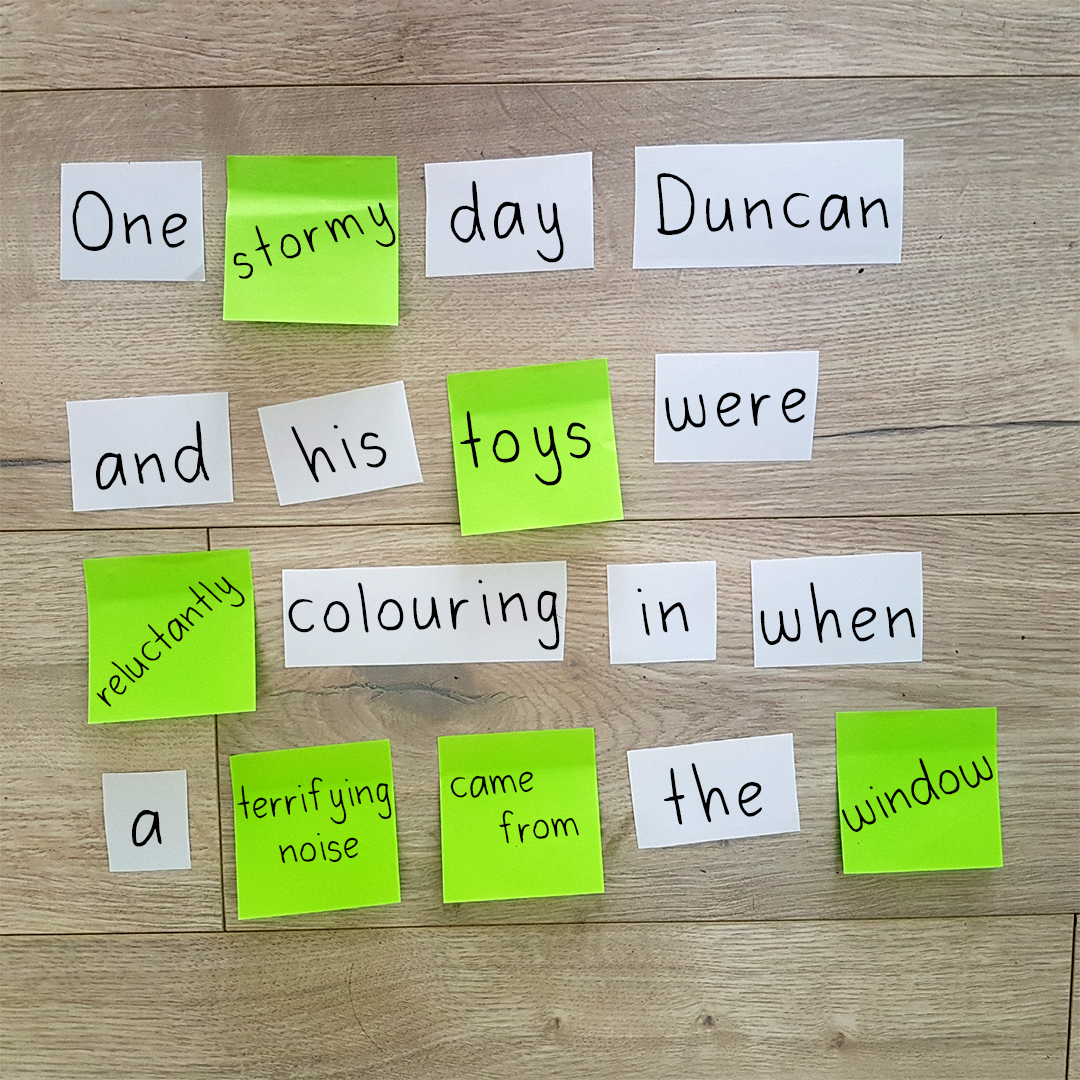 One stormy day Duncan
and his toys were
reluctantly colouring in when
a terrifying noise came from the window